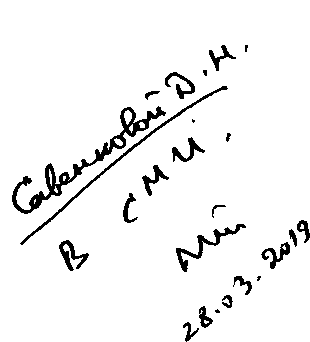 Савенковой Д.Н.
В СМИ.
28.03.2019